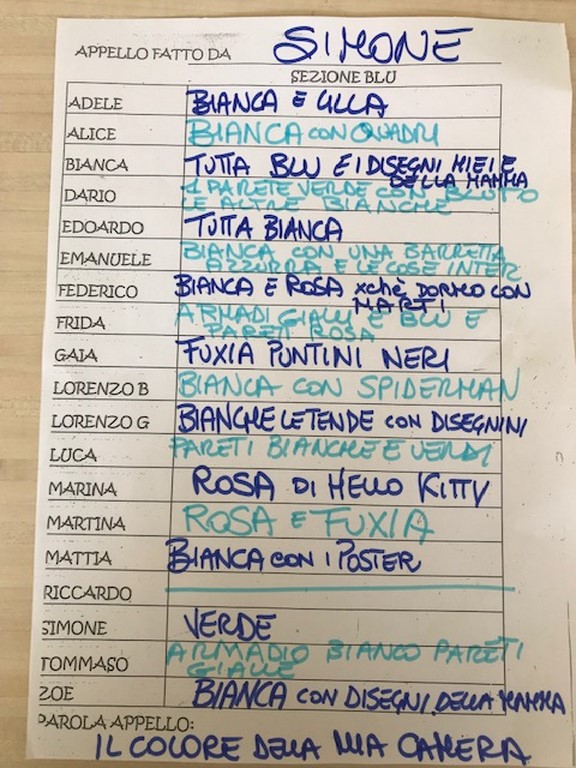 APPELLO FATTO DA SIMONE
SEZIONE BLU
ADELE BIANCA E LILLA
ALICE BIANCA CON QUADRI
BIANCA TUTTA BLU E I DISEGNI MIEI E
DELLA MAMMA
DARIO 1 PARETE VERDE CON BLUTTO
LE ALTRE BIANCHE
EDOARDO TUTTA BIANCA
EMANUELE BIANCA CON UNA BARRETTA
AZZURRA E LE COSE INTER
FEDERICO BIANCA E ROSA xchè DORMO CON
MARTI
FRIDA ARMADI GIALLI E BLU E
PARETI ROSA
GAIA FUXIA PUNTINI NERI
LORENZO B BIANCA CON SPIDERMAN
LORENZO G BIANCHE LE TENDE CON DISEGNINI
LUCA PARETI BIANCHE E VERDI
MARINA ROSA DI HELLO KITTY
MARTINA ROSA E FUXIA
MATTIA BIANCA CON I POSTER
RICCARDO
SIMONE VERDE
TOMMASO ARMADIO BIANCO PARETI
GIALLE
ZOE BIANCA CON DISEGNI DELLA MAMMA
PAROLA APPELLO:
IL COLORE DELLA MIA CAMERA